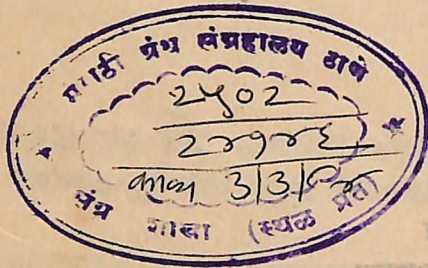 मराठी ग्रंथ संग्रहालय ठाणे
२५०२
२२१२६
काव्य ३/३/
ग्रंथ शाखा (स्थळ प्रत)